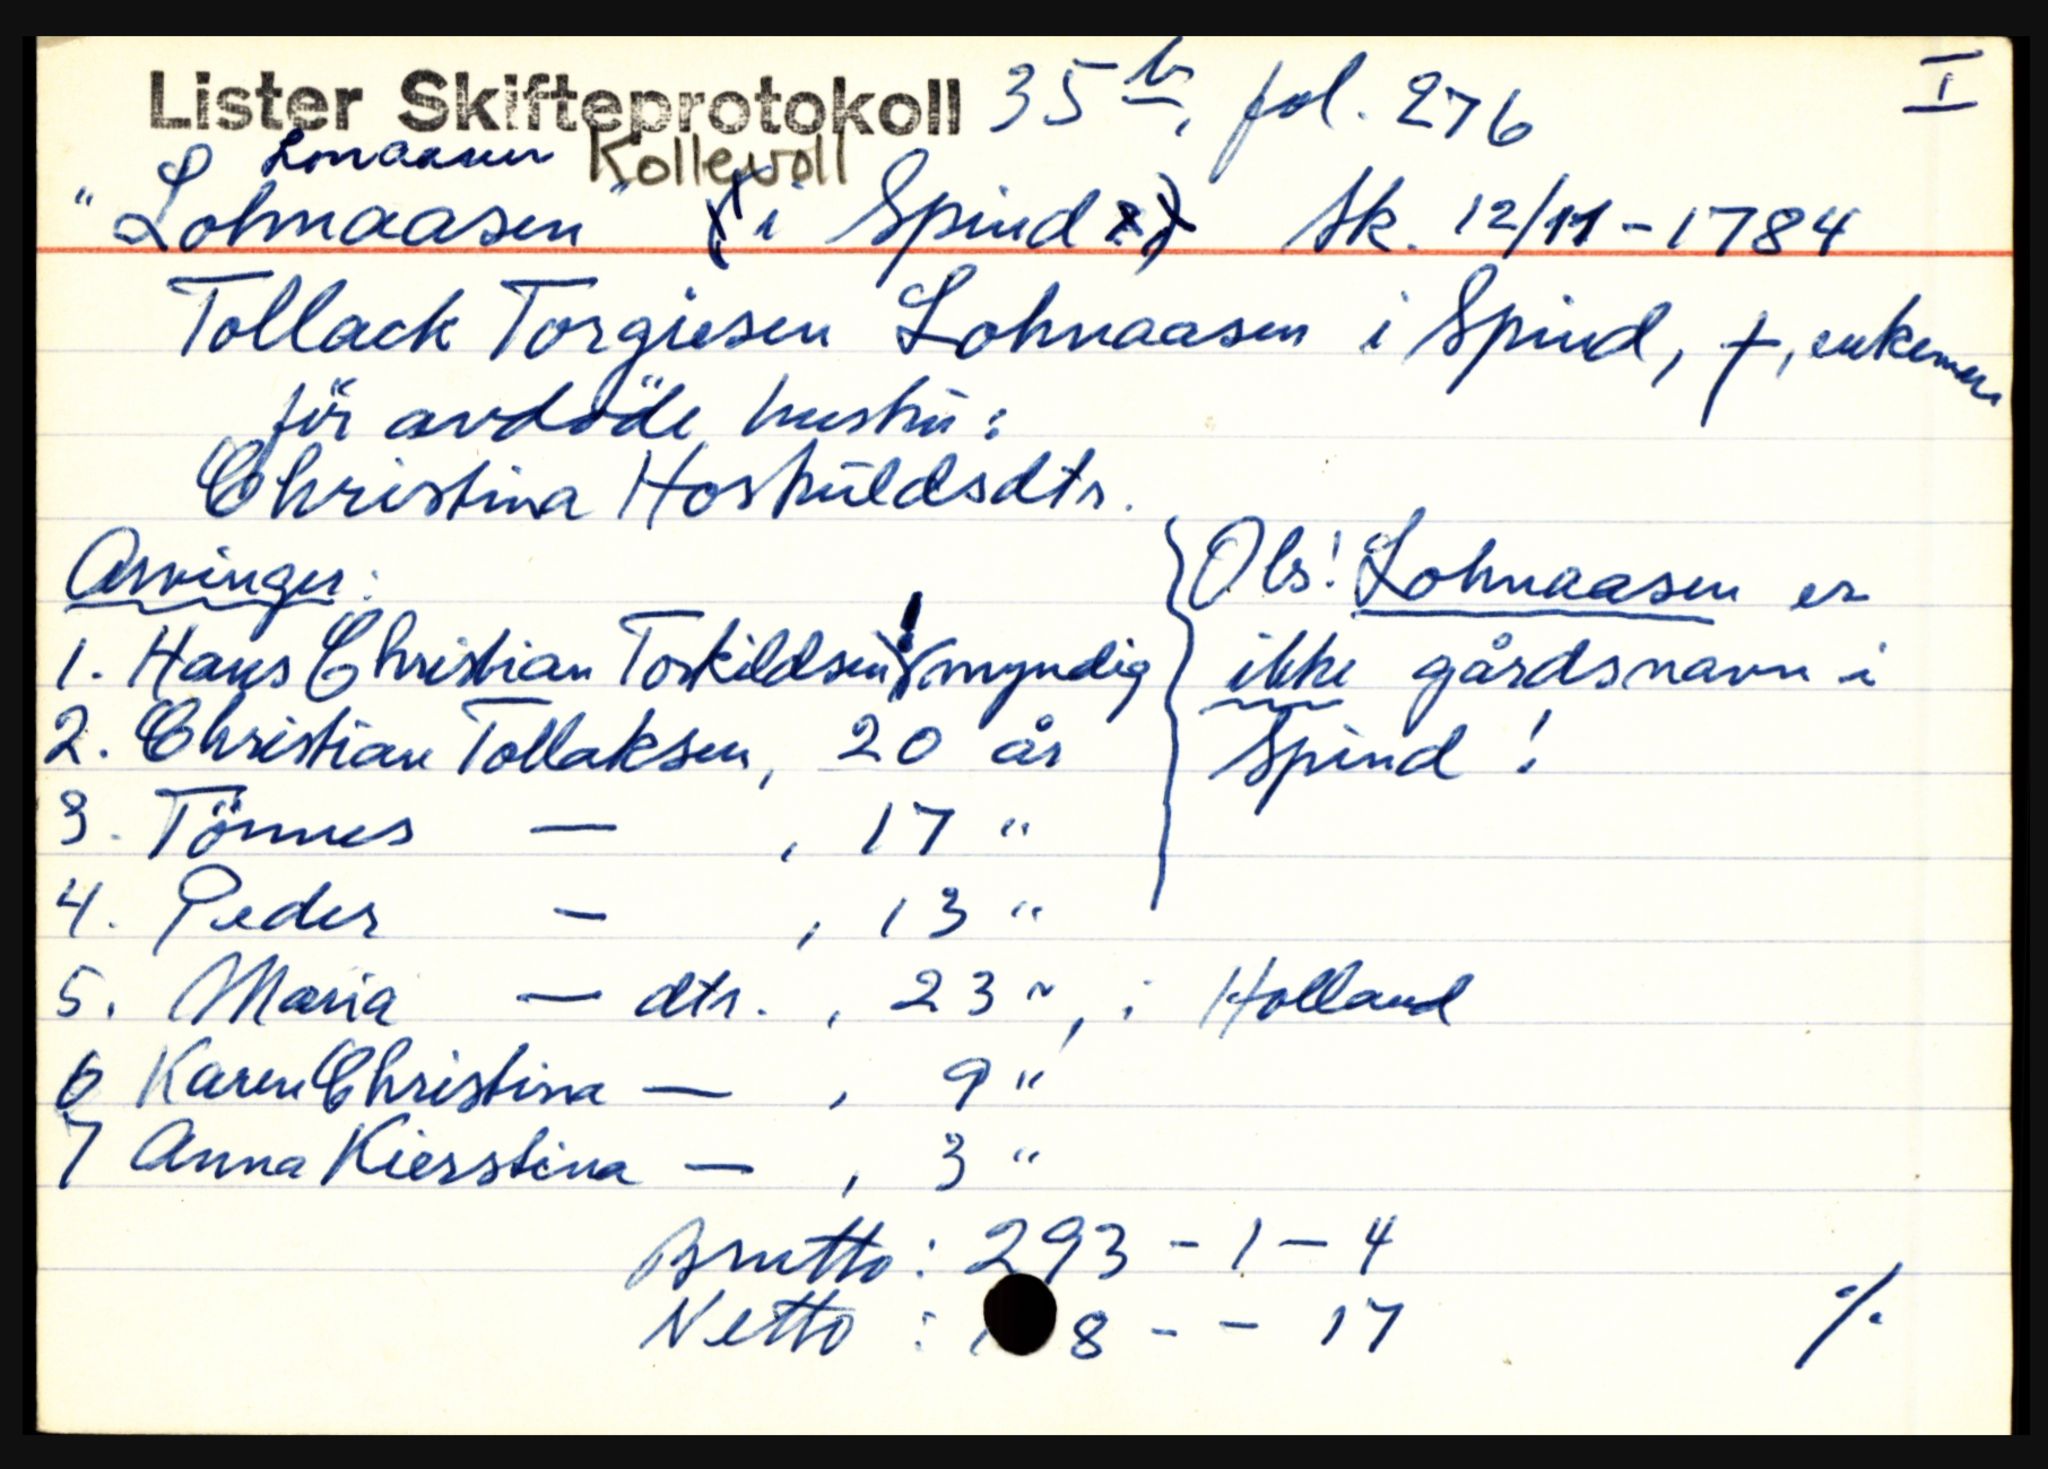 Lister Skifteprotokoll 35 b, fol. 276 I
Lonaasen Kollevoll
"Lohnaasen" i Spind Sk. 12/11-1784
Tollack Torgiesen Lohnaasen i Spind, †, enkeman
för avdöde hustrü:
Christina Hoskuldsdtr.
Arvinger:
1. Hans Christian Torkildsen! (myndig
2. Christian Tollaksen, 20 år
3. Tönnes — , 17 "
4. Peder — , 13 "
5. Maria — dtr. , 23 ", i Holland
6 Karen Christina — , 9 "
7 Anna Kierstina — , 3 "
Obs! Lohnaasen er
ikke gårdsnavn i
Spind!
Brutto: 293 - 1 - 4
Netto: 8 - - 17
./.